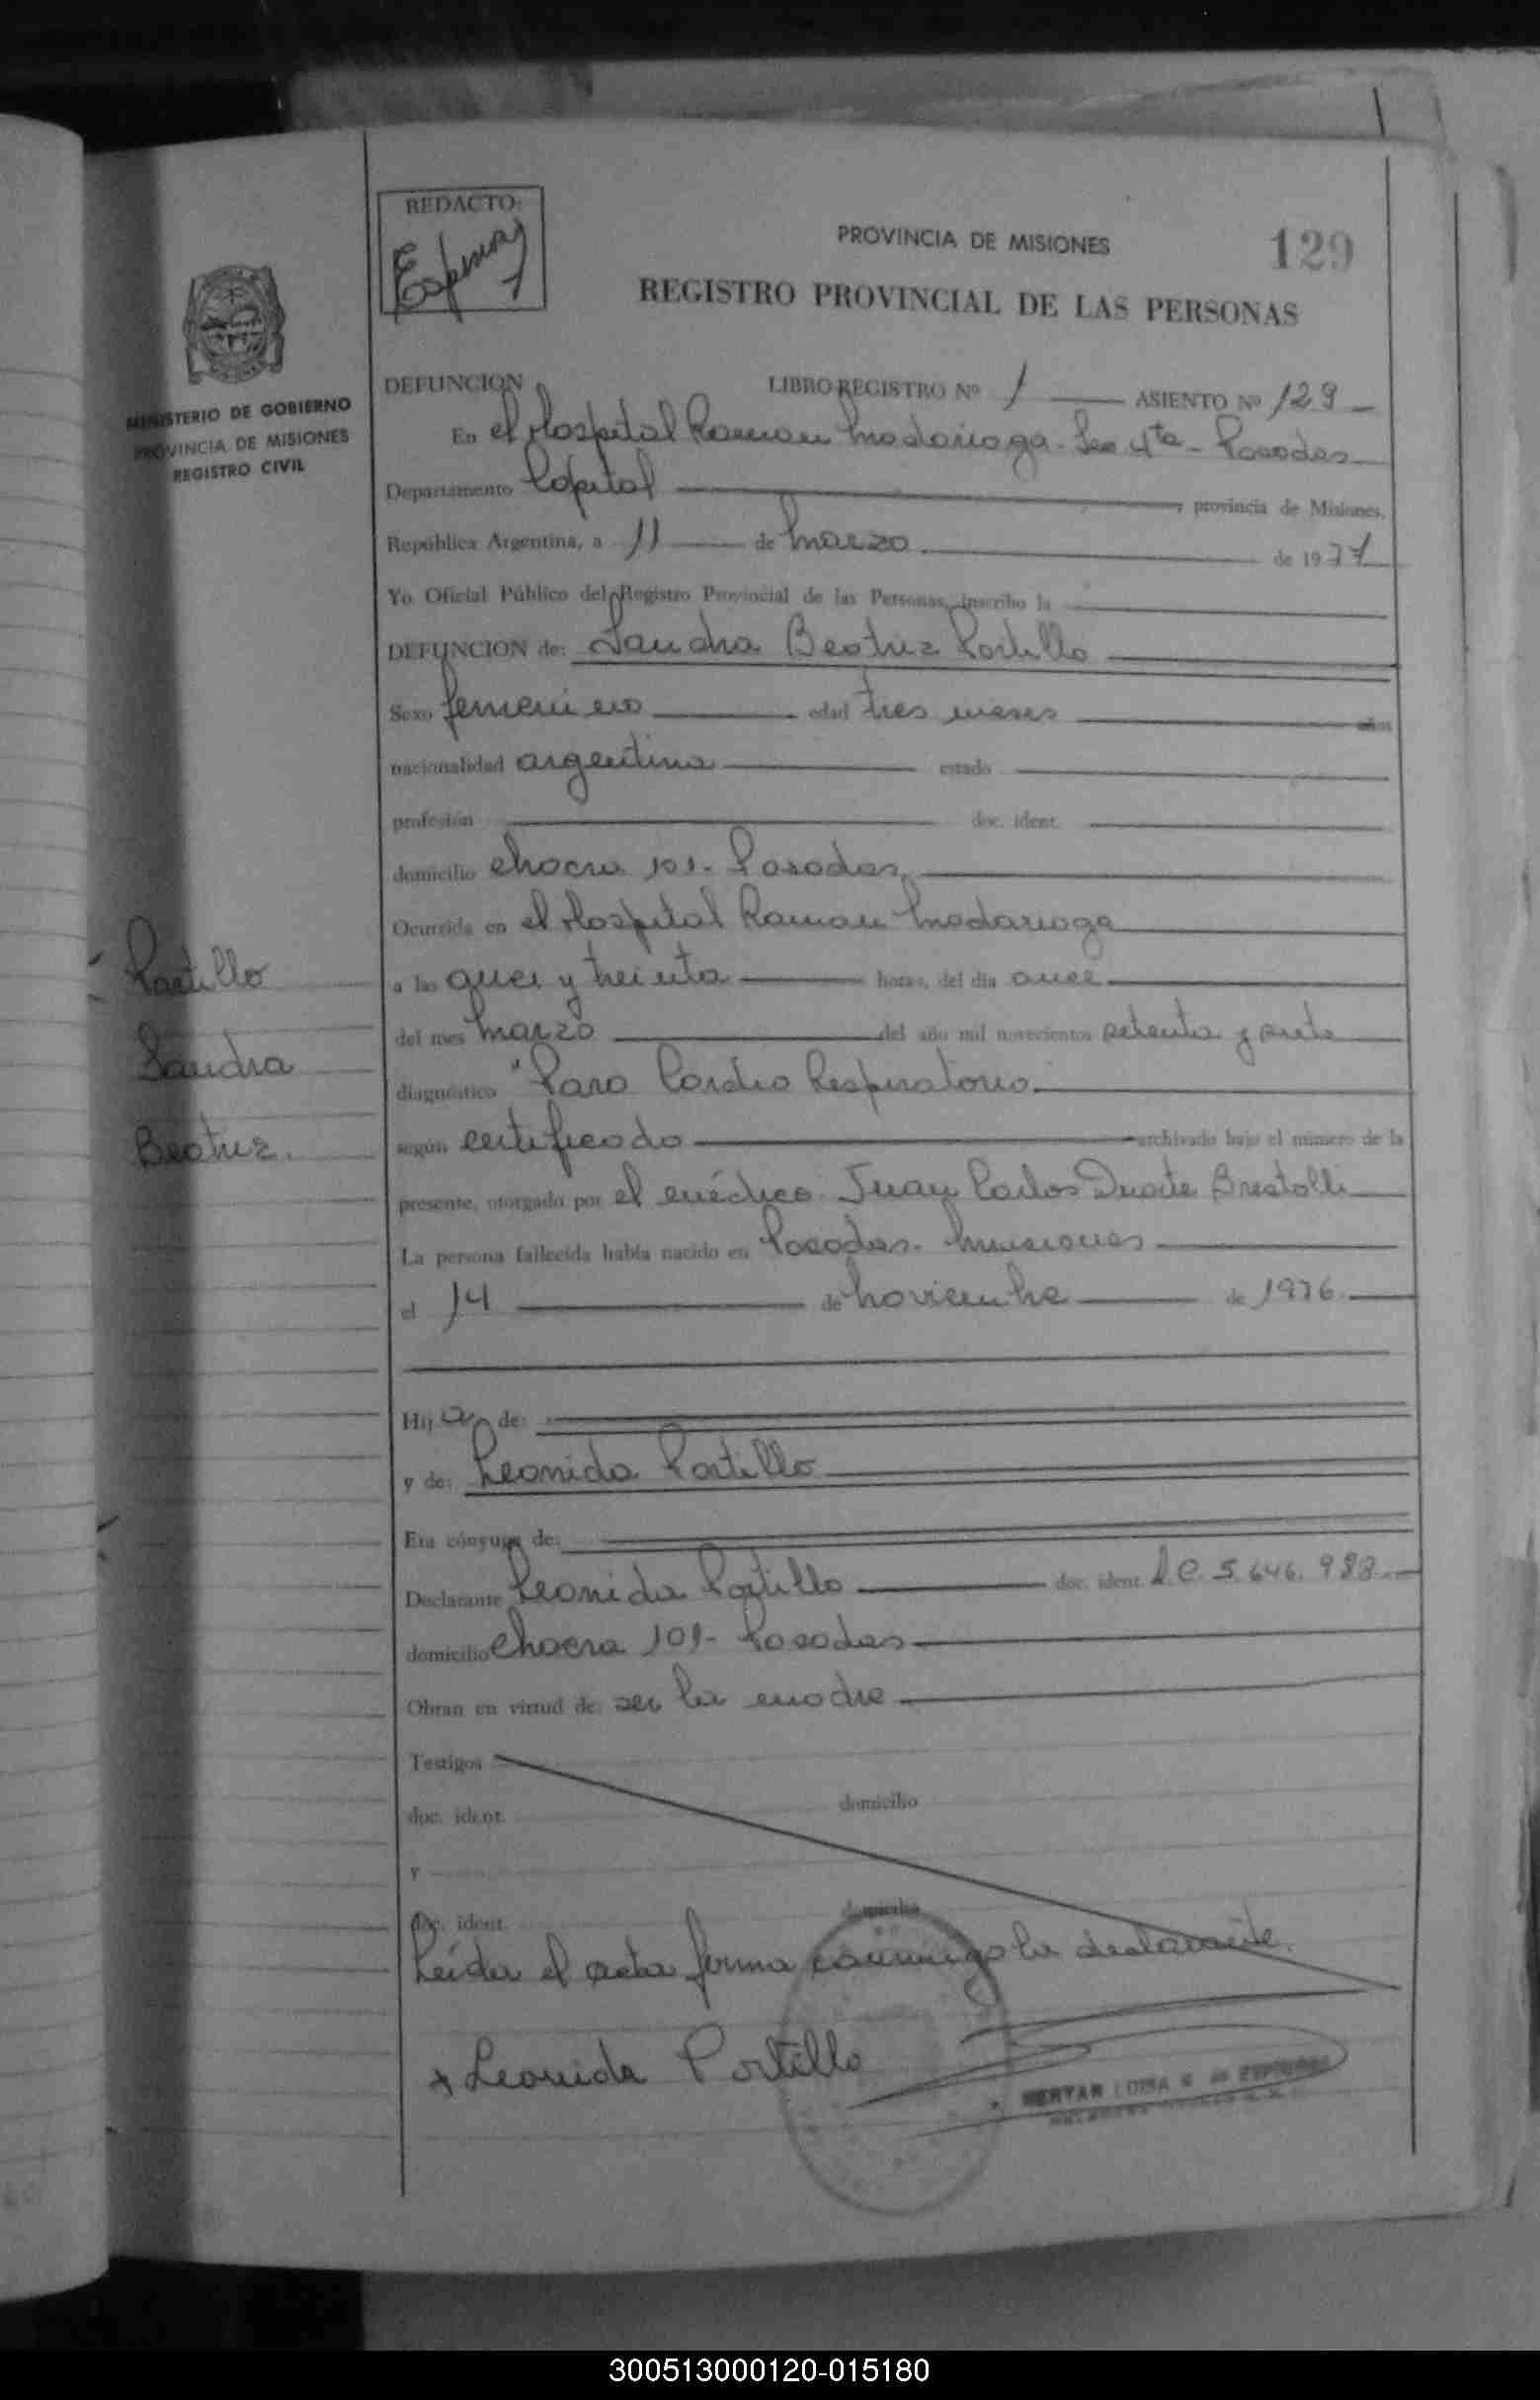 REDACTO:
PROVINCIA DE MISIONES
129
REGISTRO PROVINCIAL DE LAS PERSONAS
MINISTERIO DE GOBIERNO
PROVINCIA DE MISIONES
REGISTRO CIVIL
DEFUNCION LIBRO REGISTRO Nº 1 ASIENTO Nº 129
En el Hospital Ramon Madariaga - Sec 4ta - Posadas
Departamento Capital, provincia de Misiones,
República Argentina, a 11 de Marzo de 1977
Yo Oficial Público del Registro Provincial de las Personas, inscribo la
DEFUNCION de: Sandra Beatriz Portillo
Sexo femenino edad tres meses años
nacionalidad argentina estado
profesión doc. ident.
domicilio Chacra 101 - Posadas
Ocurrida en el Hospital Ramon Madariaga
Portillo
a las y treinta horas, del día once
del mes Marzo del año mil novecientos setenta y siete
Sandra
diagnóstico "Paro Cardio Respiratorio
Beatriz.
según certificado archivado bajo el número de la
presente, otorgado por el médico Juan Carlos Duarte
La persona fallecida había nacido en Posadas - Misiones
el 14 de Noviembre de 1976.
Hija de:
y de: Leonida Portillo
Era cónyuge de:
Declarante Leonida Portillo doc. ident. L.C. 5.646.983
domicilio Chacra 101 - Posadas
Obran en virtud de: ser la madre
Testigos
doc. ident. domicilio
y
doc. ident. domicilio
Leída el acta firma conmigo la declarante.
x Leonida Portillo
300513000120-015180